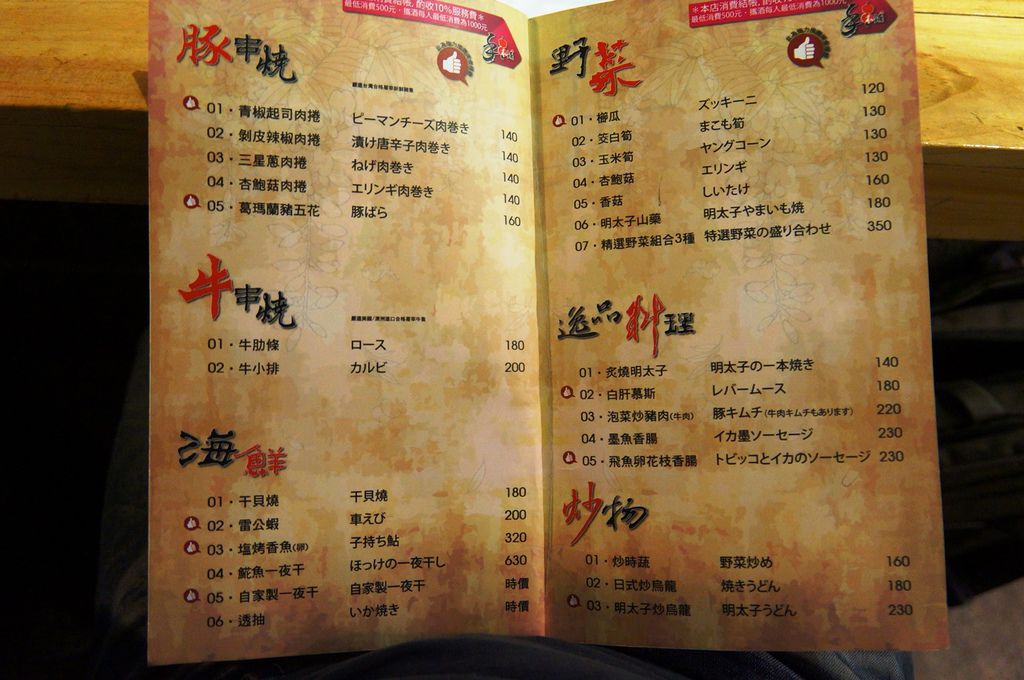 費結帳, 酌收10%服務費*
最低消費500元‧攜酒每人最低消費為1000元
豚串燒
01‧青椒起司肉捲 ピーマンチーズ肉巻き 140
02‧剝皮辣椒肉捲 漬け唐辛子肉巻き 140
03‧三星蔥肉捲 ねげ肉巻き 140
04‧杏鮑菇肉捲 エリンギ肉巻き 140
05‧葛瑪蘭豬五花 豚ばら 160
牛串燒
01‧牛肋條 ロース 180
02‧牛小排 カルビ 200
海鮮
01‧干貝燒 干貝燒 180
02‧雷公蝦 車えび 200
03‧塩烤香魚(卵) 子持ち鮎 320
04‧鯱魚一夜干 ほっけの一夜干し 630
05‧自家製一夜干 自家製一夜干 時價
06‧透抽 いか焼き 時價
*本店消費結帳, 酌收10%服務費*
最低消費500元‧攜酒每人最低消費為1000元
野菜
01‧櫛瓜 ズッキーニ 120
02‧筊白筍 まこも筍 130
03‧玉米筍 ヤングコーン 130
04‧杏鮑菇 エリンギ 130
05‧香菇 しいたけ 160
06‧明太子山藥 明太子やまいも燒 180
07‧精選野菜組合3種 特選野菜の盛り合わせ 350
逸品料理
01‧炙燒明太子 明太子の一本焼き 140
02‧白肝慕斯 レバームース 180
03‧泡菜炒豬肉(牛肉) 豚キムチ (牛肉キムチもあります) 220
04‧墨魚香腸 イカ墨ソーセージ 230
05‧飛魚卵花枝香腸 トビッコとイカのソーセージ 230
炒物
01‧炒時蔬 野菜炒め 160
02‧日式炒烏龍 焼きうどん 180
03‧明太子炒烏龍 明太子うどん 230